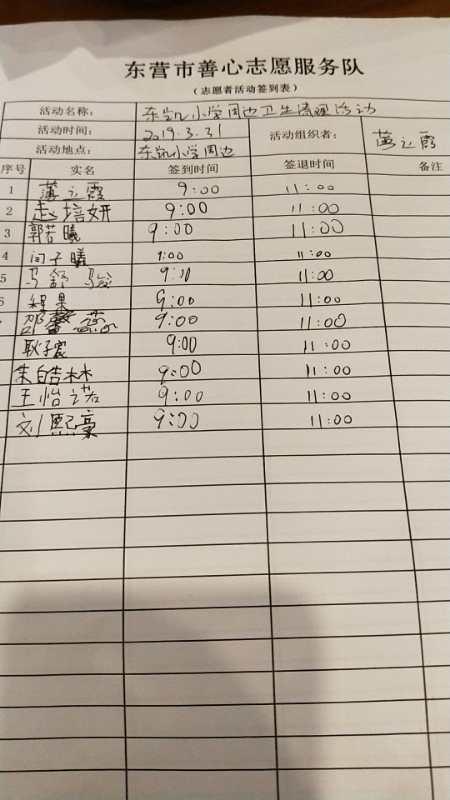 东营市善心志愿服务队
（志愿者活动签到表）
活动名称： 东凯小学周边卫生清理活动
活动时间： 2019.3.31 活动组织者： 薄立霞
活动地点： 东凯小学周边
序号 实名 签到时间 签退时间 备注
1 薄立霞 9:00 11:00
2 赵培妍 9:00 11:00
3 郭若曦 9:00 11:00
4 闫子曦 9:00 11:00
5 马舒骏 9:00 11:00
6 程果 9:00 11:00
9:00 11:00
耿子宸 9:00 11:00
朱皓林 9:00 11:00
王怡诺 9:00 11:00
刘熙豪 9:00 11:00